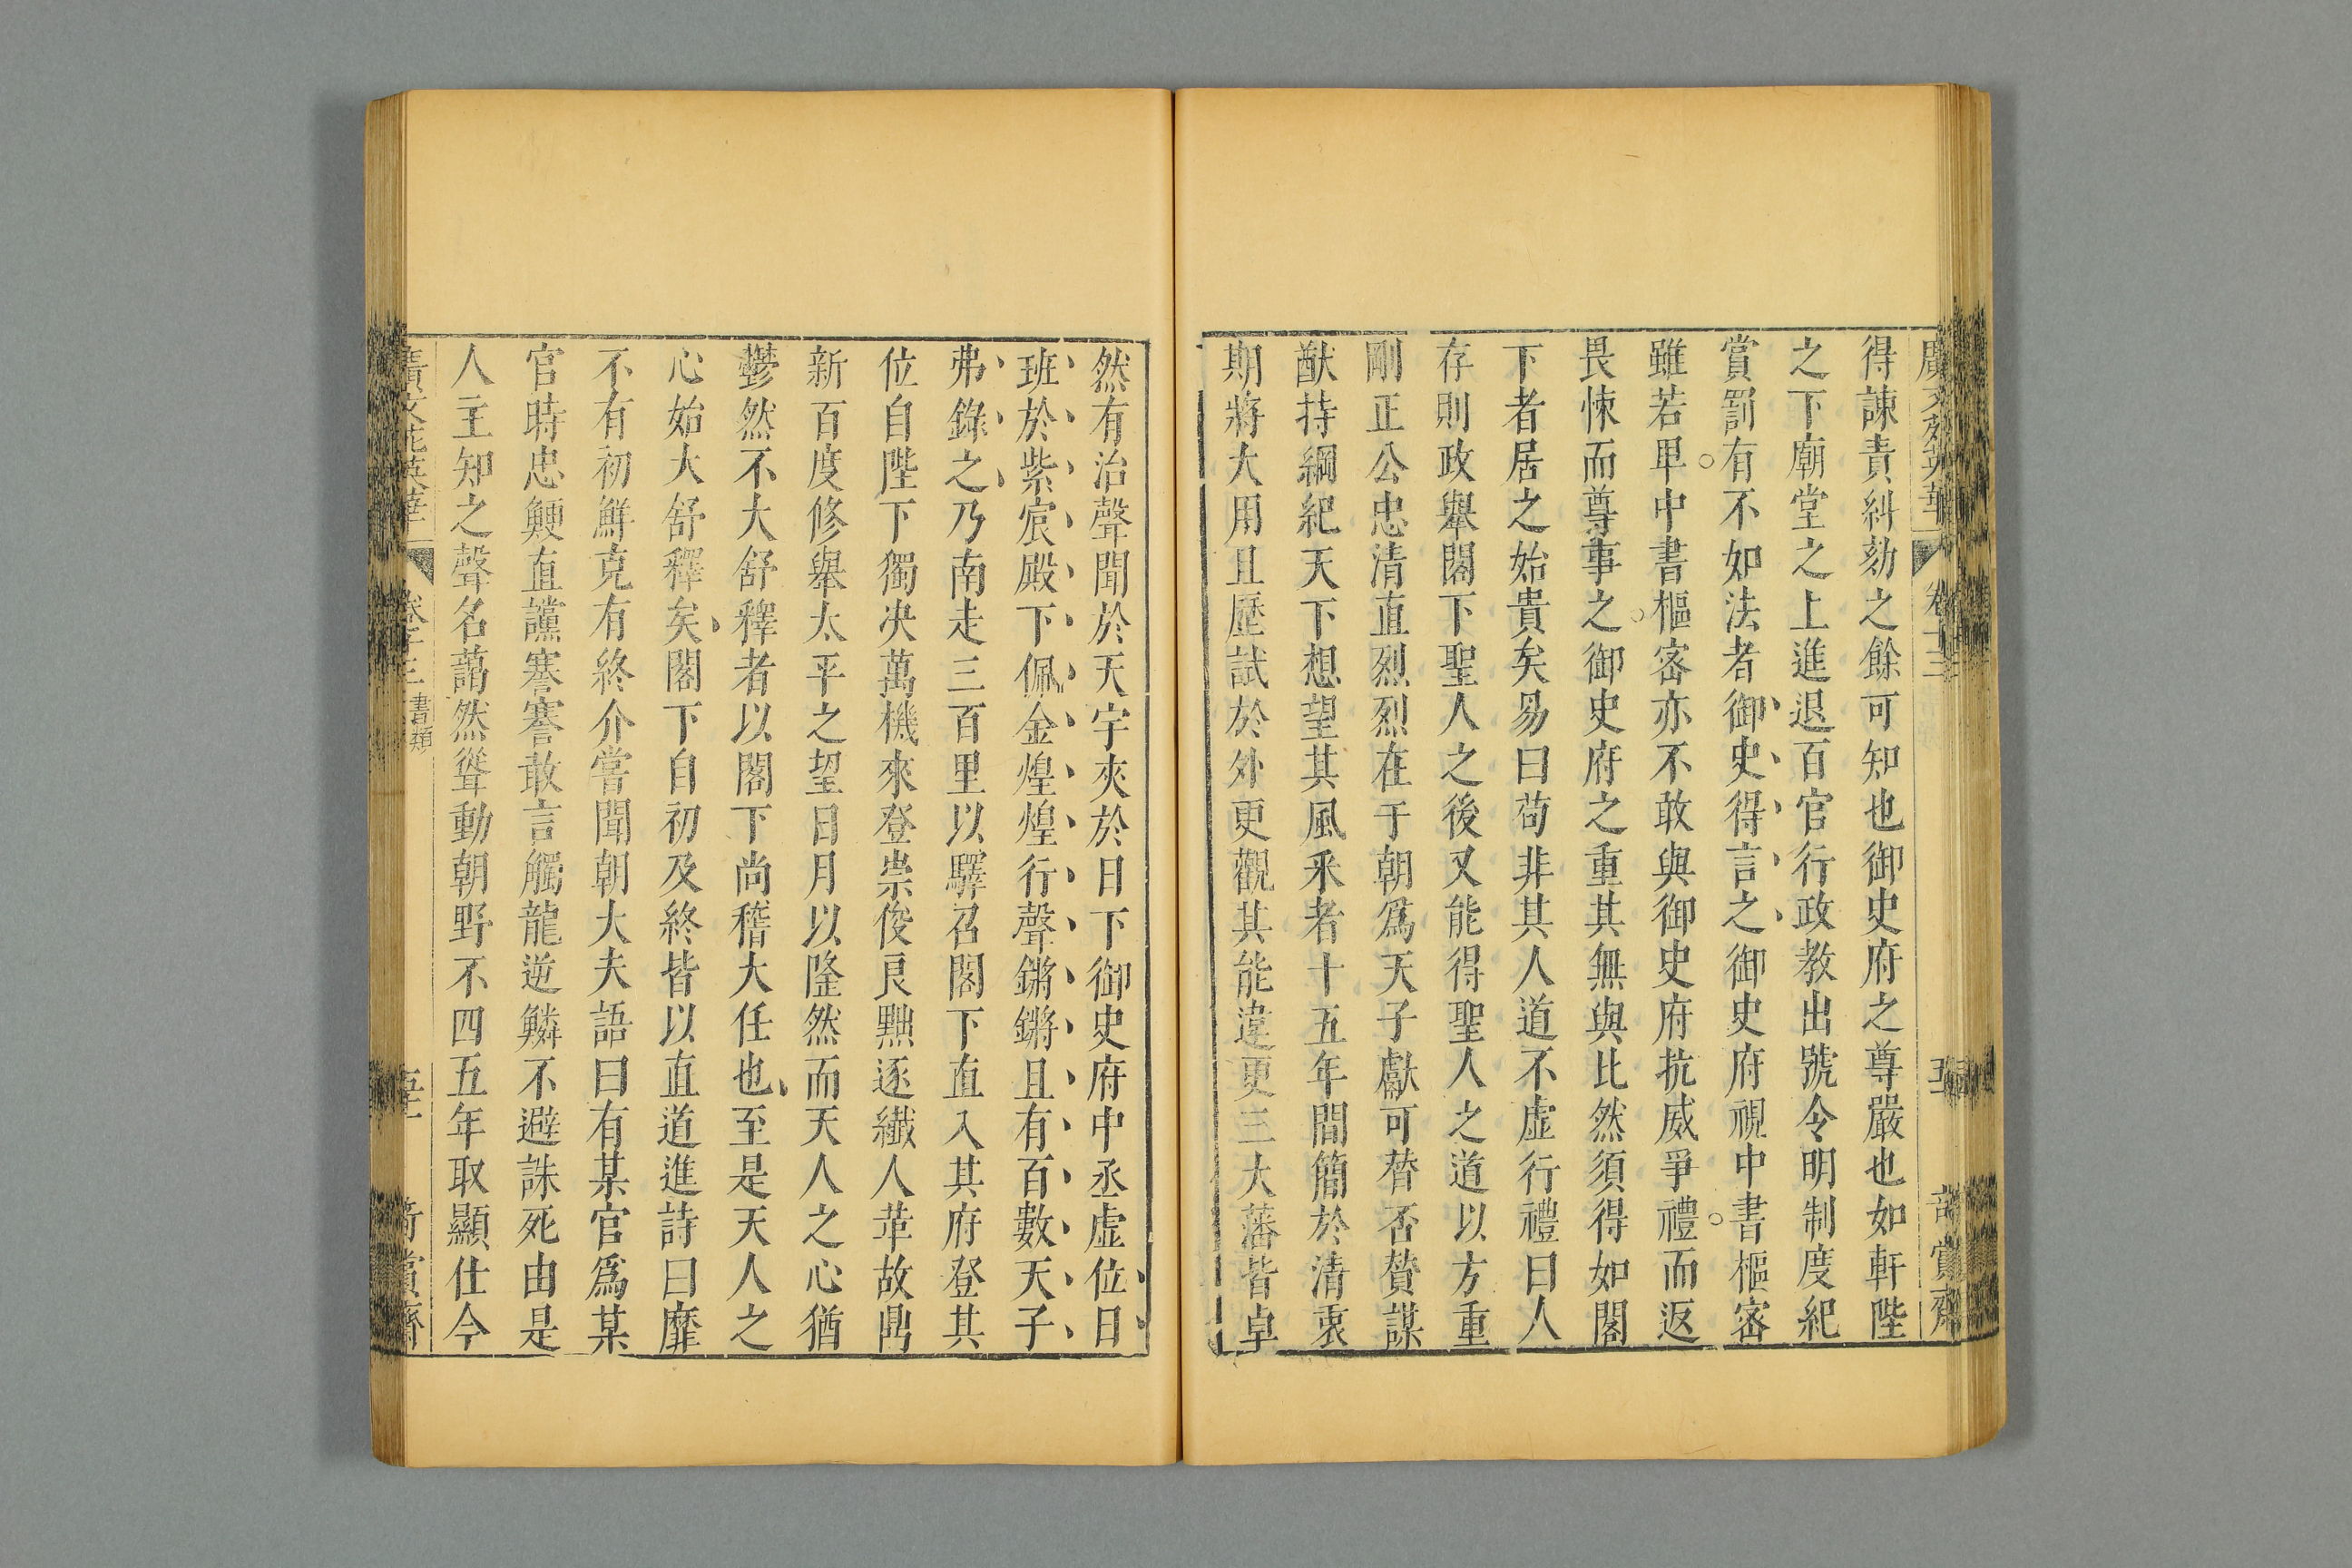 得諫責糾劾之餘可知也御史府之尊嚴也如軒陛
之下廟堂之上進退百官行政教出號令明制度紀
賞罰有不如法者御史得言之御史府視中書樞密
雖若卑中書樞密亦不敢與御史府抗威爭禮而返
畏悚而尊事之御史府之重其無與比然須得如閣
下者居之始貴矣易曰苟非其人道不虛行禮曰人
存則政舉閣下聖人之後又能得聖人之道以方重
剛正公忠清直烈烈在于朝爲天子獻可替否贊謀
猷持綱紀天下想望其風采者十五年間簡於清衷
期將大用且歷試於外更觀其能違更三大藩皆卓
然有治聲聞於天宇夾於日下御史府中丞虛位日
班於紫宸殿下佩金煌煌行聲鏘鏘且有百數天子
弗錄之乃南走三百里以驛召閣下直入其府登其
位自陛下獨决萬機來登崇俊良黜逐纖人革故鼎
新百度修舉太平之望日月以隆然而天人之心猶
鬱然不大舒釋者以閣下尚稽大任也至是天人之
心始大舒釋矣閣下自初及終皆以直道進詩曰靡
不有初鮮克有終介嘗聞朝大夫語曰有某官爲某
官時忠鯁直讜謇謇敢言觸龍逆鱗不避誅死由是
人主知之聲名藹然聳動朝野不四五年取顯仕今
廣文苑英華 卷十三 書類